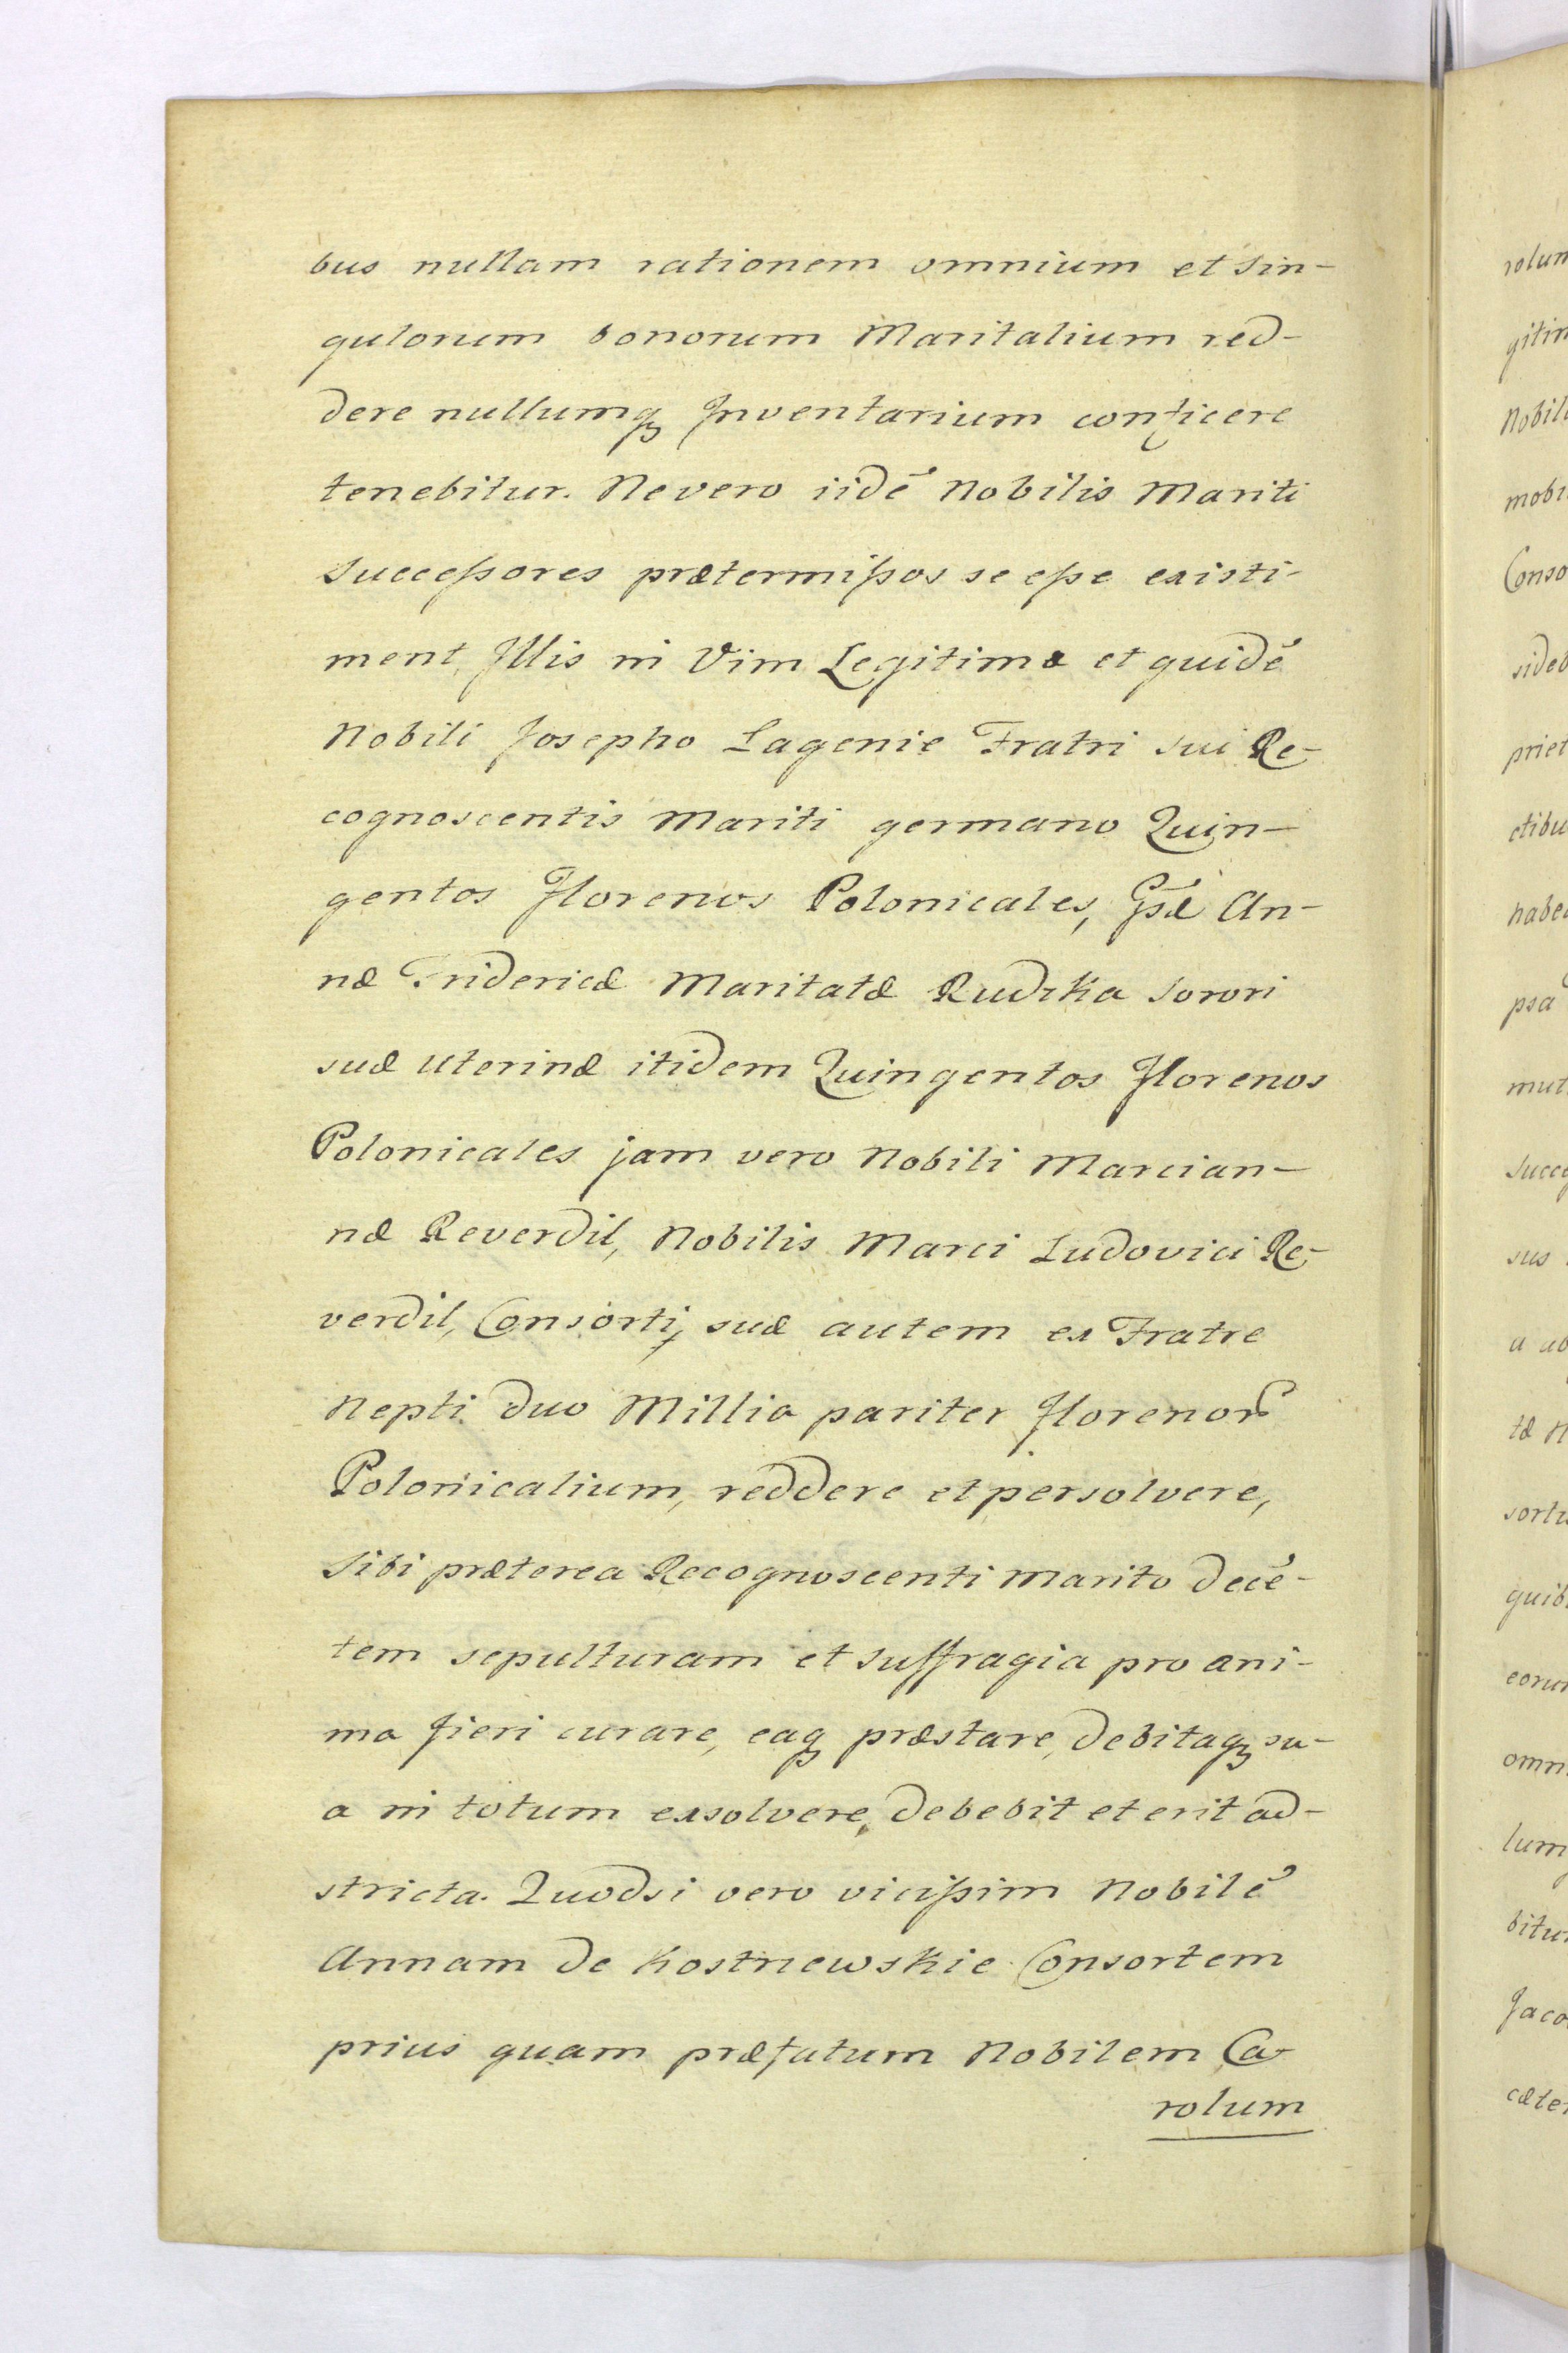 bus nullam rationem omnium et Sin-
gulorum bonorum Maritalium red-
dere nullumq; Inventarium conficere
tenebitur. Ne vero iidē Nobilis Mariti
Succeſsores prætermiſsos se eſse existi-
ment, Illis in Vim Legitimæ et quidē
Nobili Josepho Lagenie Fratri sui Re-
cognoscentis Mariti germano Quin-
gentos Florenos Polonicales, Gsæ An-
næ Fridericæ Maritatæ Rudzka Sorori
suæ Uterinæ itidem Quingentos Florenos
Polonicales jam vero Nobili Marcian-
næ Reverdil, Nobilis Marci Ludovici Re-
verdil, Consorti, suæ autem ex Fratre
Nepti duo Millia pariter Florenor
Polonicalium, reddere et persolvere,
Sibi præterea Recognoscenti Marito decē-
tem sepulturam et suffragia pro ani-
ma fieri curare, eaq; præstare, debitaq; su-
a in totum exsolvere, debebit et erit ad-
stricta. Quodsi vero viciſsim Nobilē
Annam de Kostnewskie Consortem
prius quam præfatum Nobilem Ca-
rolum
rolum
Nobil
mobi
Conso
sideb
priet
ctibu
habe
psa
mut
succ
sus
a ab
tæ N
sortis
quib
eoru
omn
lum
bitu
Jaco
cæte